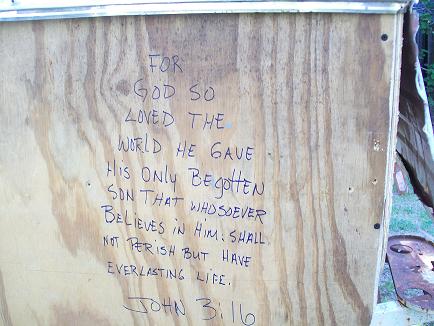 FOR
GOD SO
LOVED THE
WORLD HE GAVE
HIS ONLY BEGOTTEN
SON THAT WHOSOEVER
BELIEVES IN HIM: SHALL
NOT PERISH BUT HAVE
EVERLASTING LIFE.
JOHN 3:16